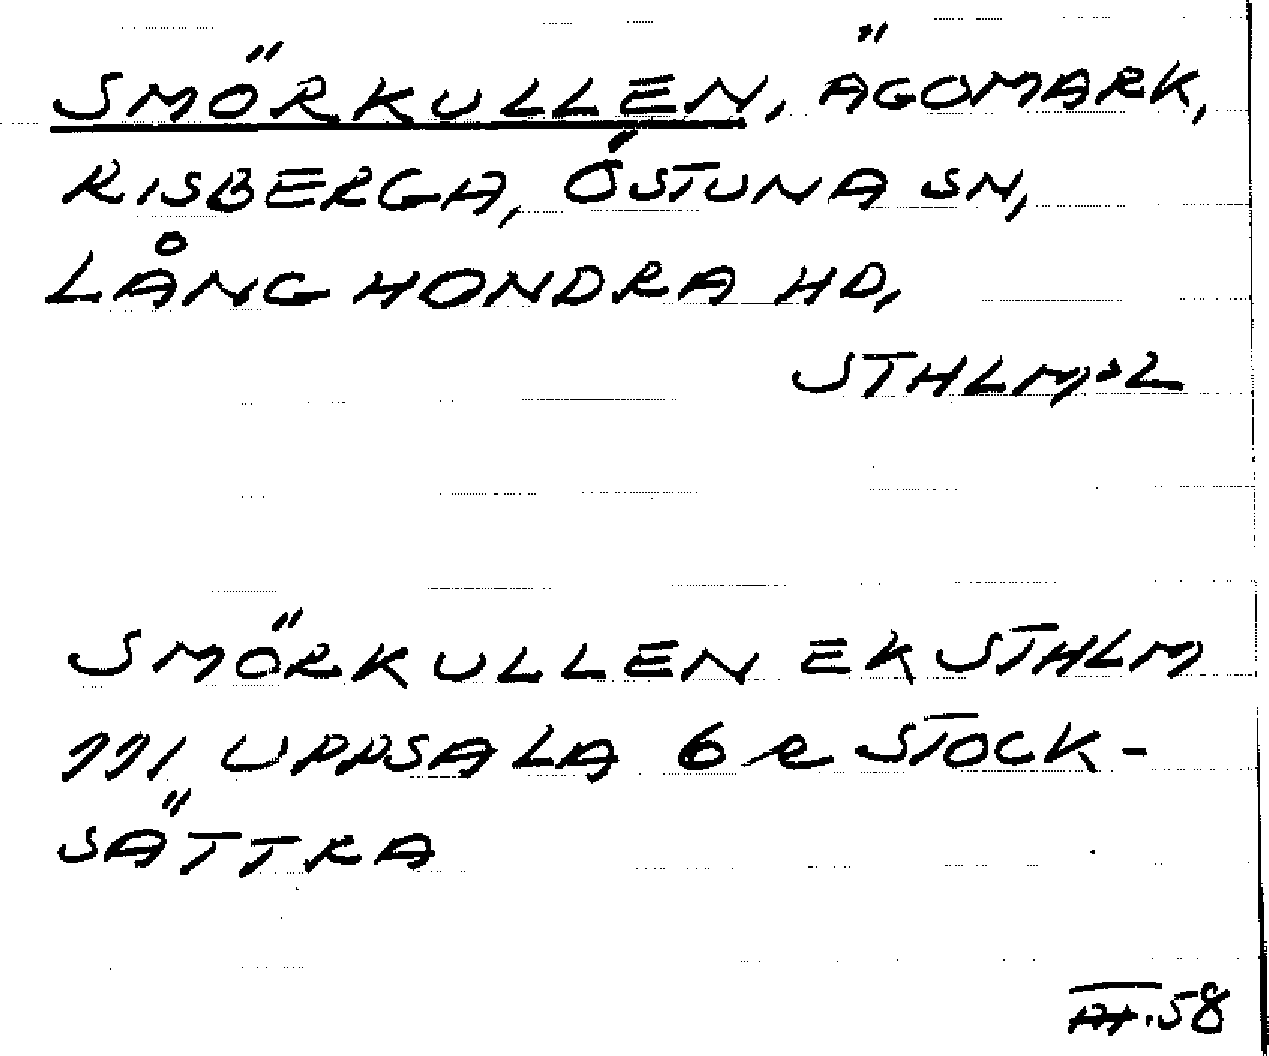 SMÖRKULLEN, ÄGOMARK,
RISBERGA, ÖSTUNA SN,
LÅNGHONDRA HD,
STHLMS L
SMÖRKULLEN EK STHLM
111 UPPSALA 6 e STOCK-
SÄTTRA
58